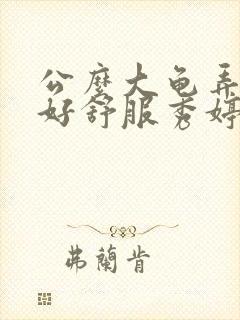 公麼大龟弄
好舒服秀婷
弗蘭肯